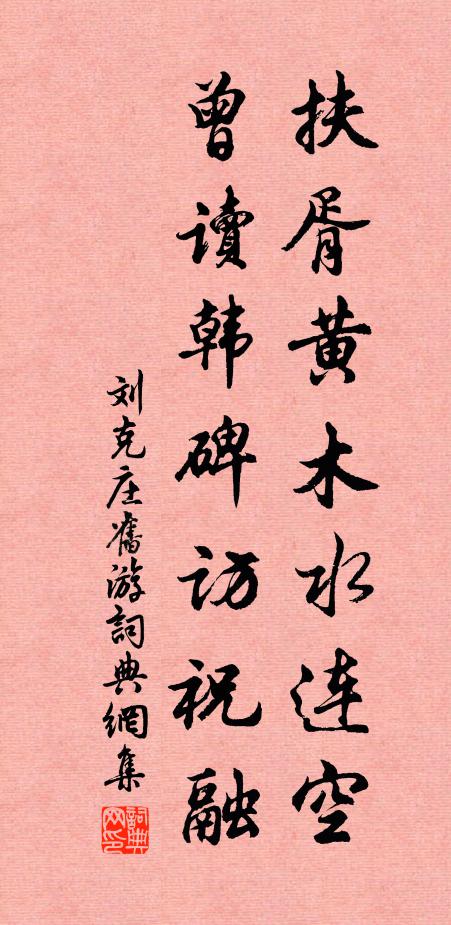 扶胥黄木水连空
曾读韩碑访祝融
刘克庄舊游詞典網集
詞典网印